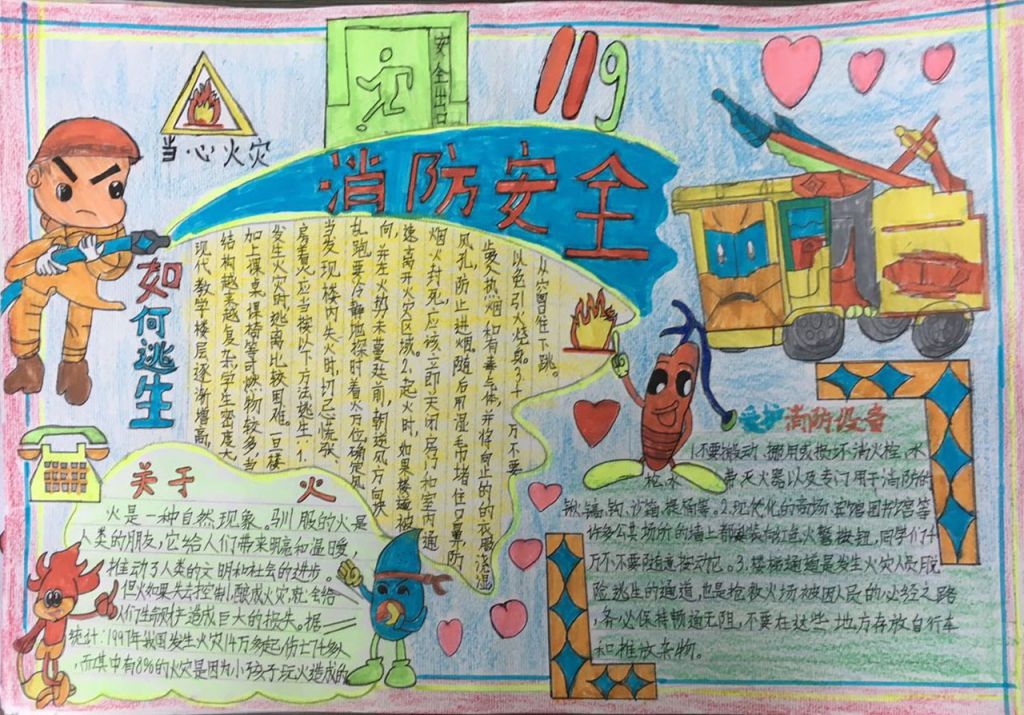 当心火灾
安全出口
119
消防安全
如何逃生
现代教学楼层逐渐增高,
结构越来越复杂,学生密度大
加上课桌课椅等可燃物较多,当
发生火灾时逃离比较困难。一旦楼
房着
应当按以下方法逃生:1.
当发现楼内失火时,切忌慌张、
乱跑,要冷静地探明着火方位,确定风
向,并在火势未蔓延前,朝逆风方向快
速离开火灾区域。2.起火时,如果楼道被
烟火封死,应该立即关闭房门和室内通
风孔,防止进烟。随后用湿毛巾堵住口鼻,防
止吸入热烟和有毒气体,并将身上的衣服浇湿
以免引火烧身。3.千万不要
从窗口往下跳。
关于火
火是一种自然现象。驯服的火是
人类的朋友,它给人们带来明亮和温暖,
推动了人类的文明和社会的进步。
但火如果失去控制,酿成火灾,就会给
人们生命财产造成巨大的损失。据
统计:1997年我国发生火灾14万多起,伤亡74多人
,而其中有8%的火灾是因为小孩子玩火造成的
爱护消防设备
1.不要搬动、挪用或损坏消火栓、水
枪、水带、灭火器以及专门用于消防的
锹、镐、钩、沙箱、提桶等。2.现代化的商场、宾馆、图书馆等
许多公共场所的墙上都安装有红色火警按钮,同学们千
万不不要随意按动它。3.楼梯通道是发生火灾人员脱
险逃生的通道,也是抢救火场被困人民的必经之路
,务必保持畅通无阻,不要在这些地方存放自行车
和堆放杂物。